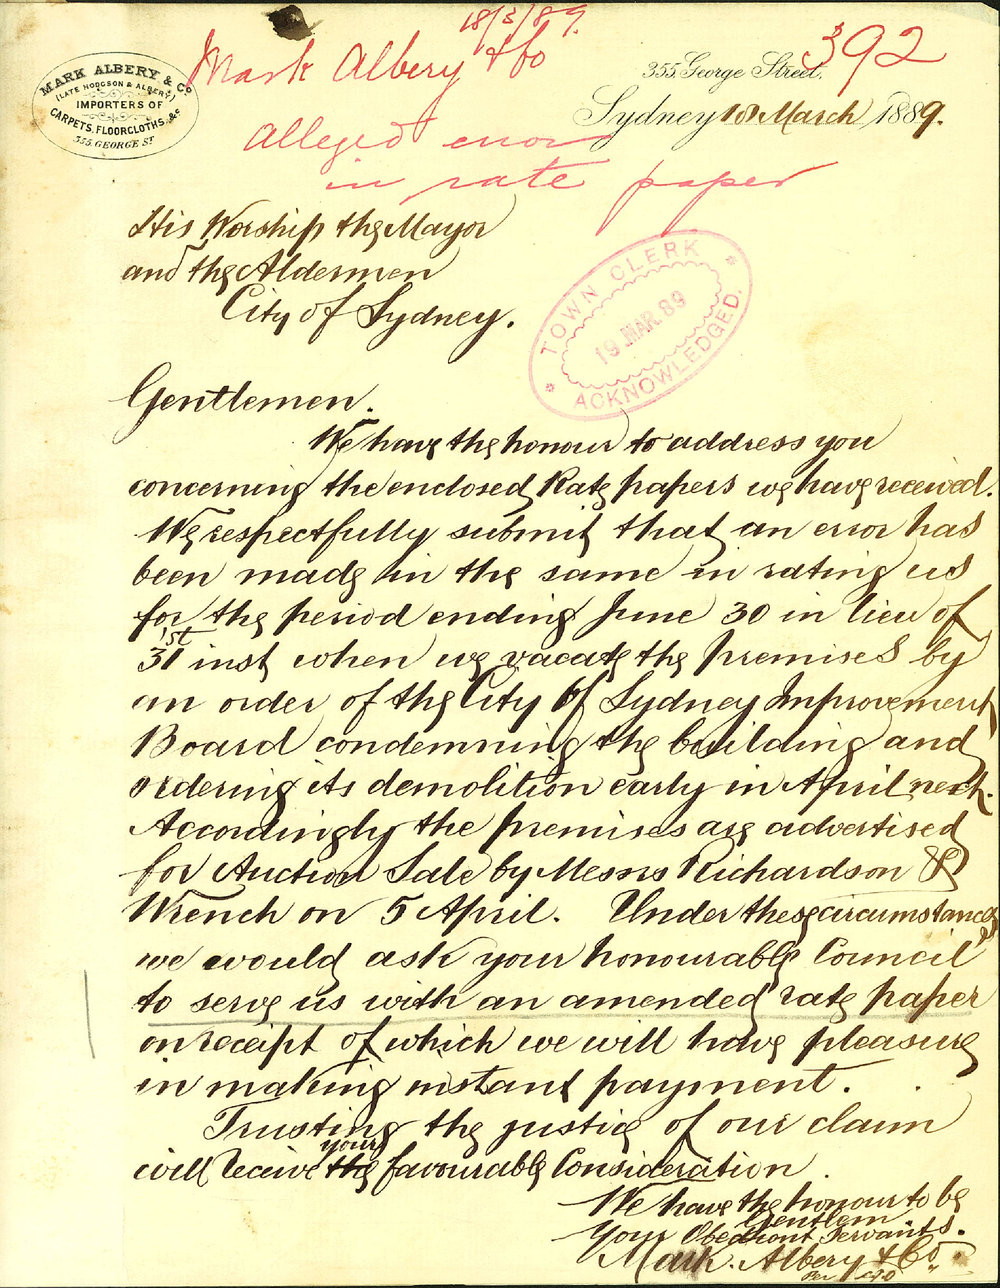 18/3/89.
392
Mark Albery & Co
alleged error
in rate paper
MARK ALBERY & Co
(LATE HODGSON & ALBERY)
IMPORTERS OF
CARPETS, FLOORCLOTHS, &c
355. GEORGE ST
355 George Street,
Sydney 18 March 1889.
His Worship the Mayor
and the Aldermen
City of Sydney.
TOWN CLERK
19 MAR. 89
ACKNOWLEDGED.
Gentlemen.
We have the honour to address you
concerning the enclosed Rate papers we have received.
We respectfully submit that an error has
been made in the same in rating us
for the period ending June 30 in lieu of
31st inst when we vacate the premises by
an order of the City of Sydney Improvement
Board condemning the building and
ordering its demolition early in April next.
Accordingly the premises are advertised
for Auction Sale by Messrs Richardson &
Wrench on 5 April. Under these circumstances
we would ask your honourable Council
to serve us with an amended rate paper
on receipt of which we will have pleasure
in making instant payment.
Trusting the justice of our claim
will receive the your favourable Consideration.
We have the honour to be
Gentlem
Your Obedient Servants.
Mark. Albery & Co.